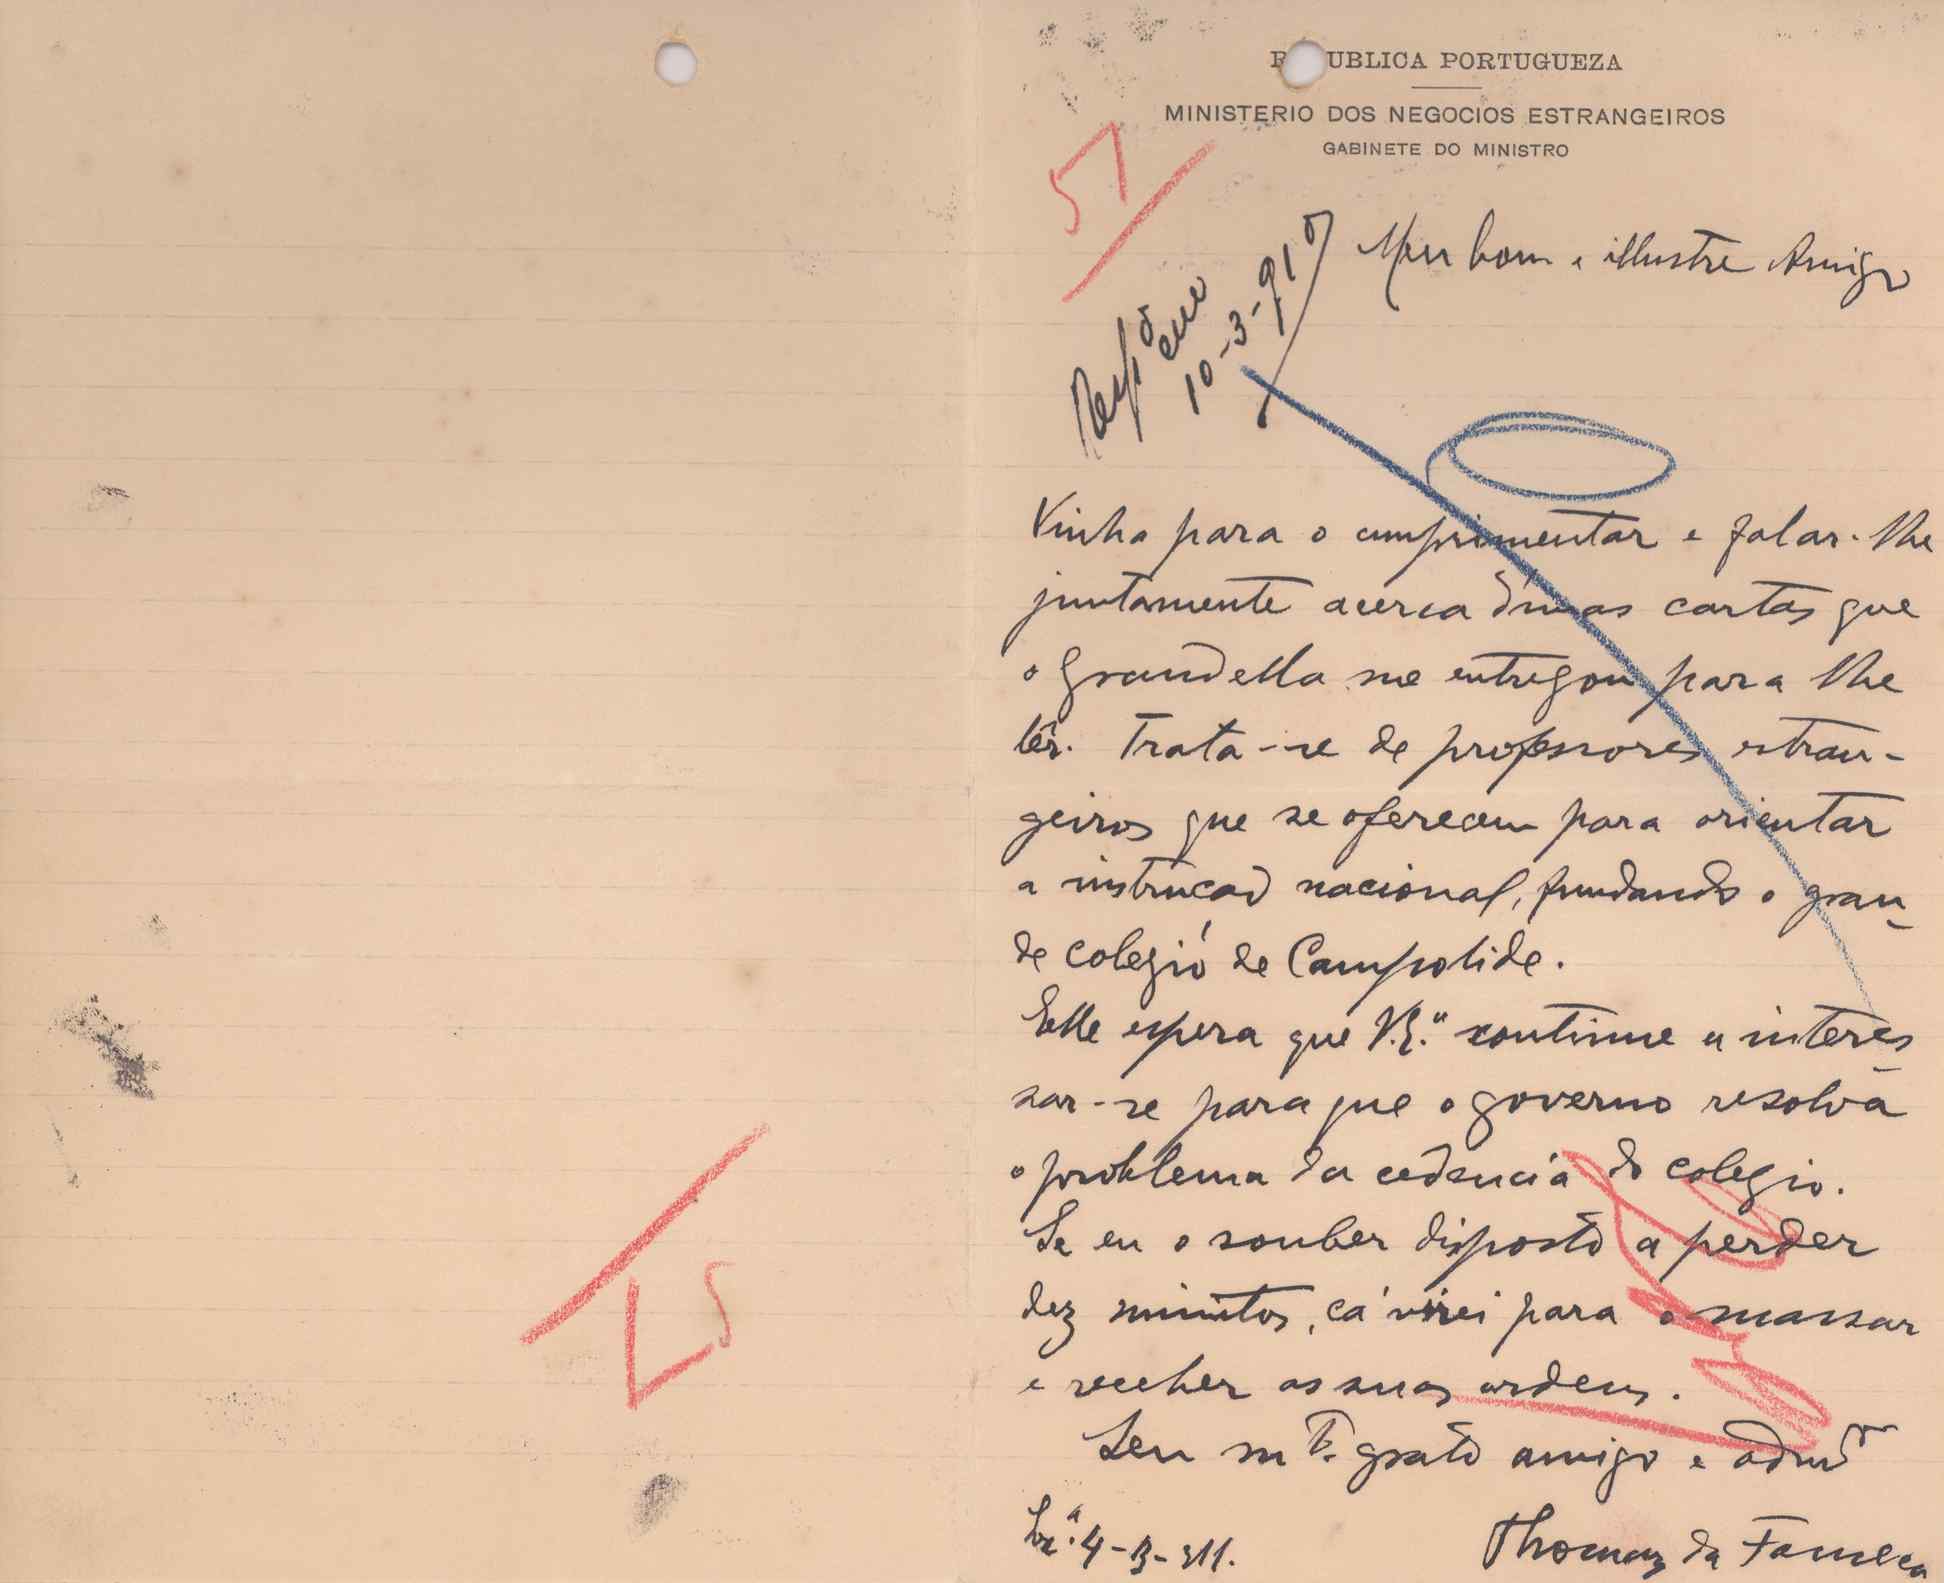 REPUBLICA PORTUGUEZA
MINISTERIO DOS NEGOCIOS ESTRANGEIROS
GABINETE DO MINISTRO
57
10-3-91
Meu bom e illustre Amigo
Vinha para o cumprimentar e falar-lhe
juntamente acerca d'umas cartas que
o Grandella me entregou para lhe
lêr. Trata-se de professores estran-
geiros que se oferecem para orientar
a instrucão nacional, fundando o gran-
de colegio de Campolide.
Elle espera que V. Ex.ª continue a interes
sar-se para que o governo resolva
o problema da cedencia do colegio.
Se eu o souber disposto a perder
dez minutos, cá virei para o massar
e receber as suas ordens.
Seu mto. grato amigo e admor
Lxa. 4-3-911.
Thomaz da Fonseca